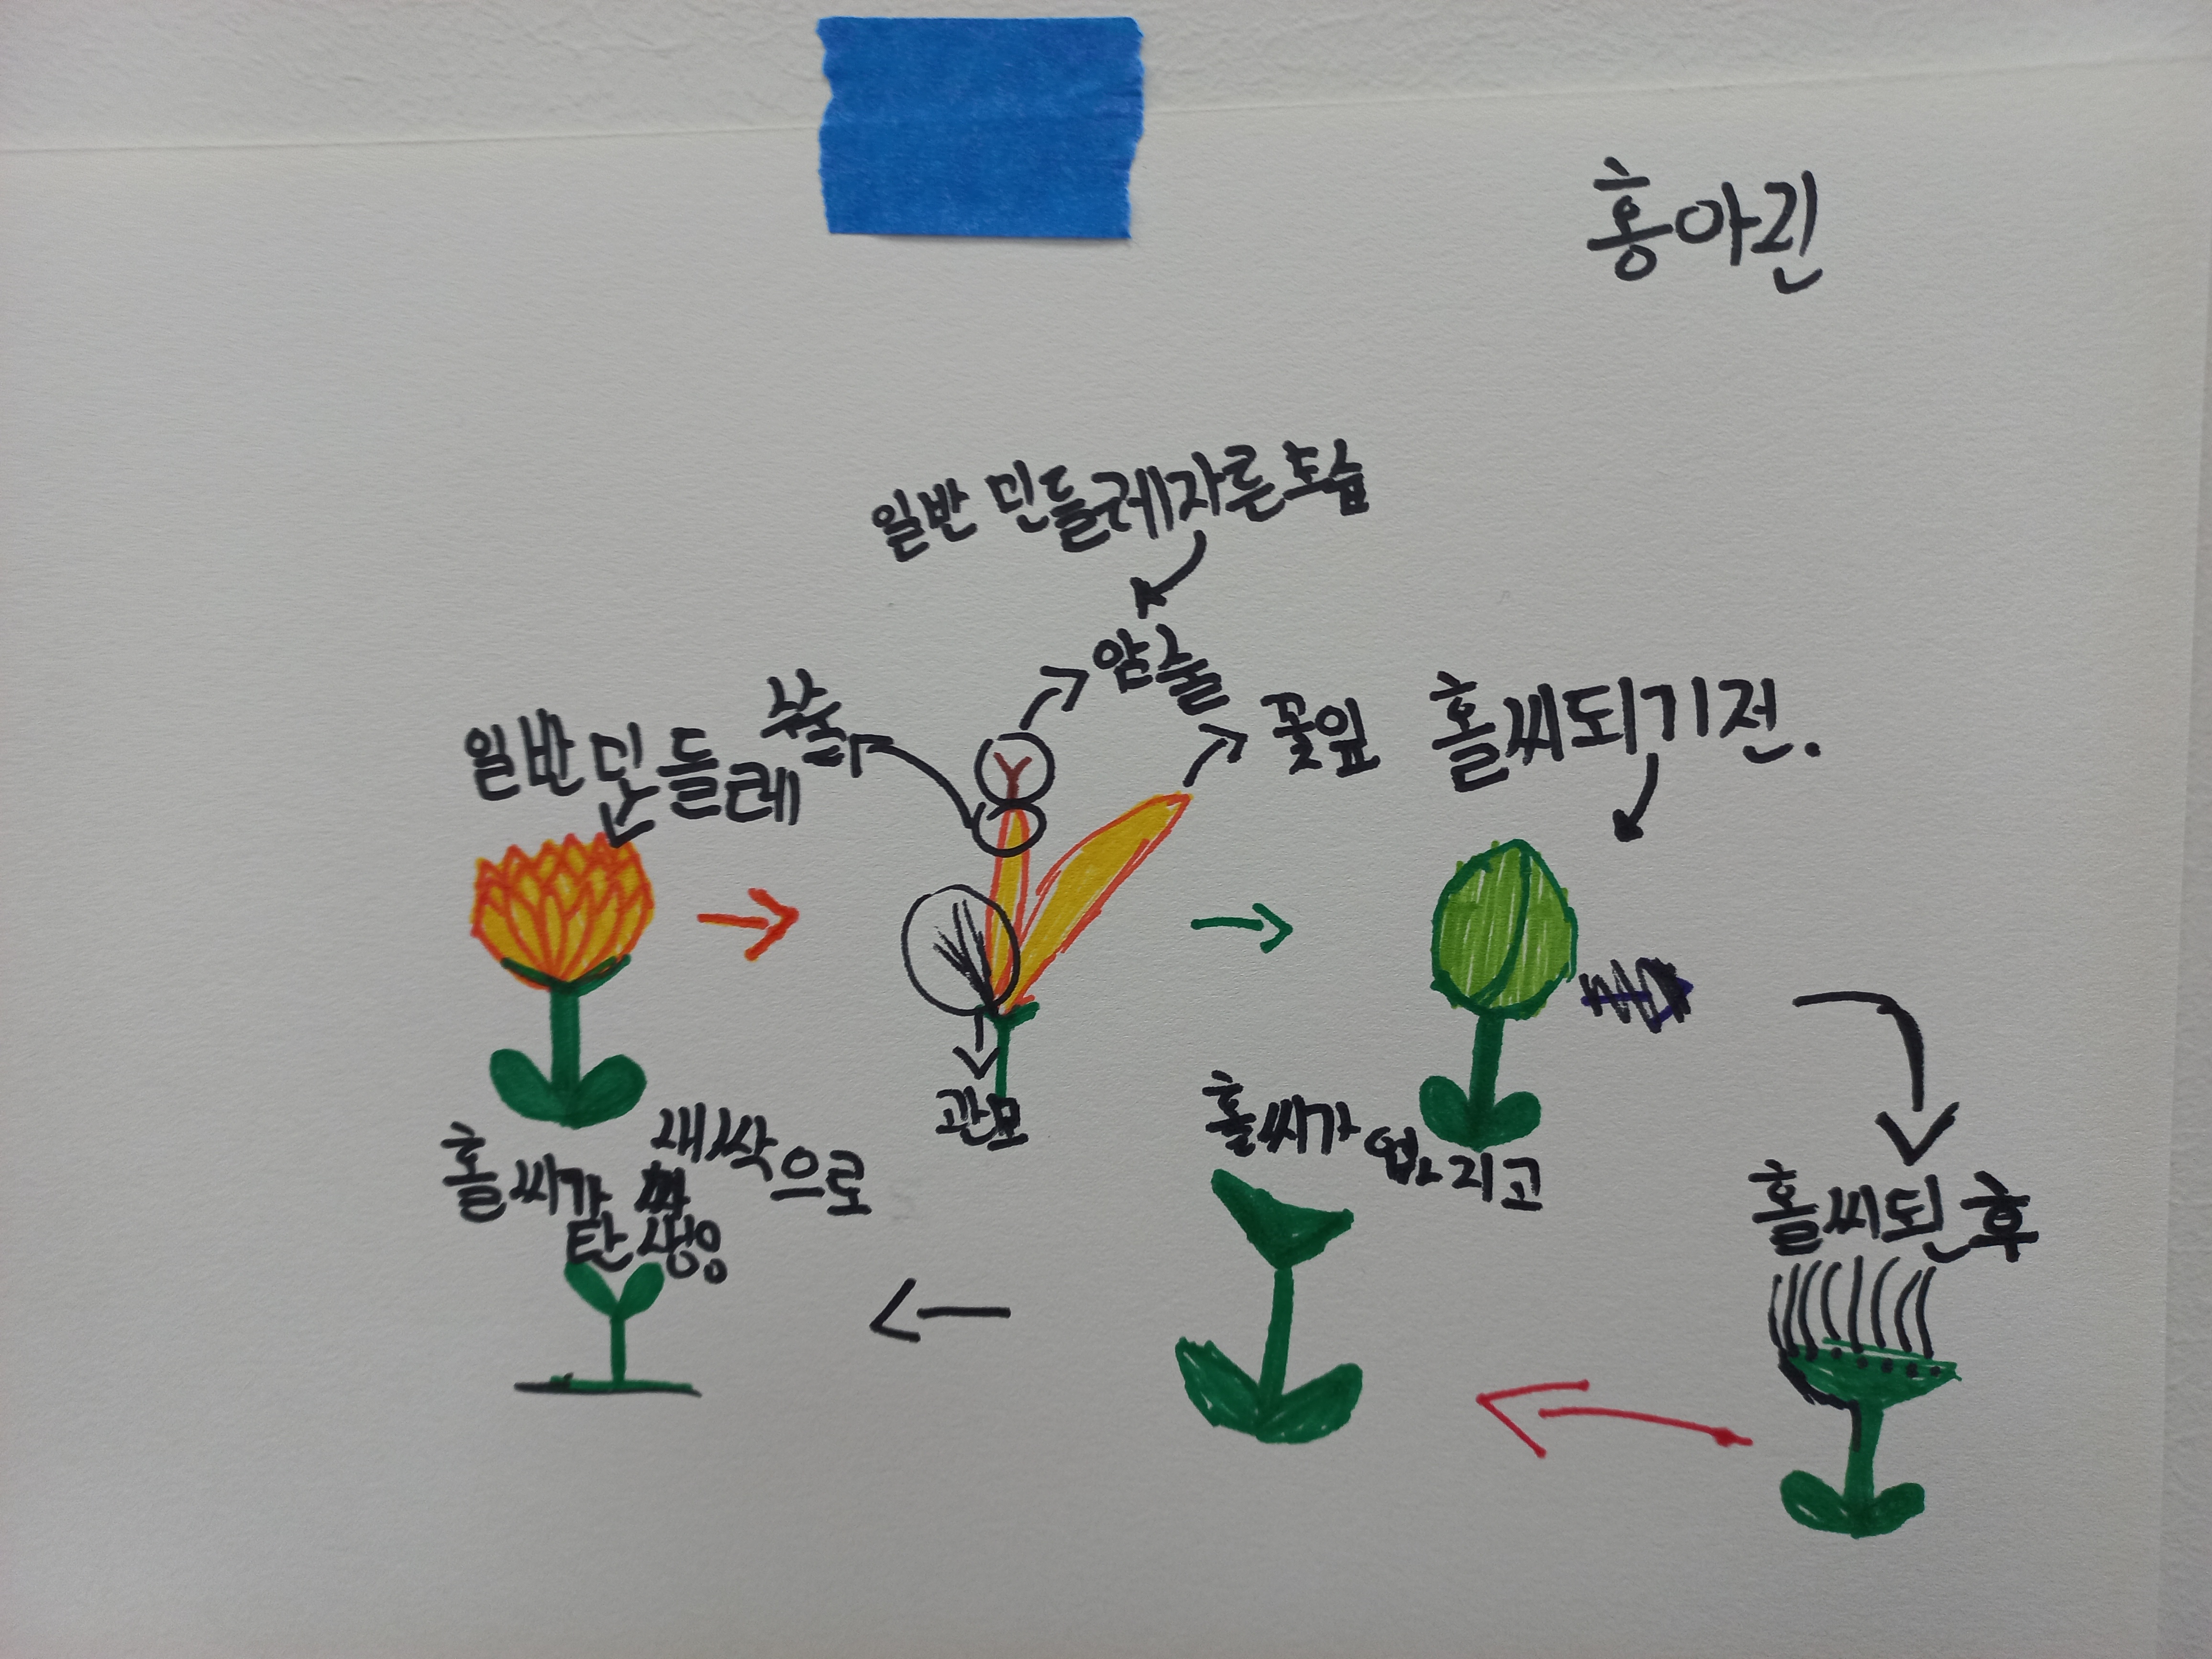 홍아린
일반 민들레자른모습
암술
수술
꽃잎
일반민들레
홀씨되기전.
관모
홀씨가 업서지고
홀씨된 후
홀씨가 새싹으로
탄생